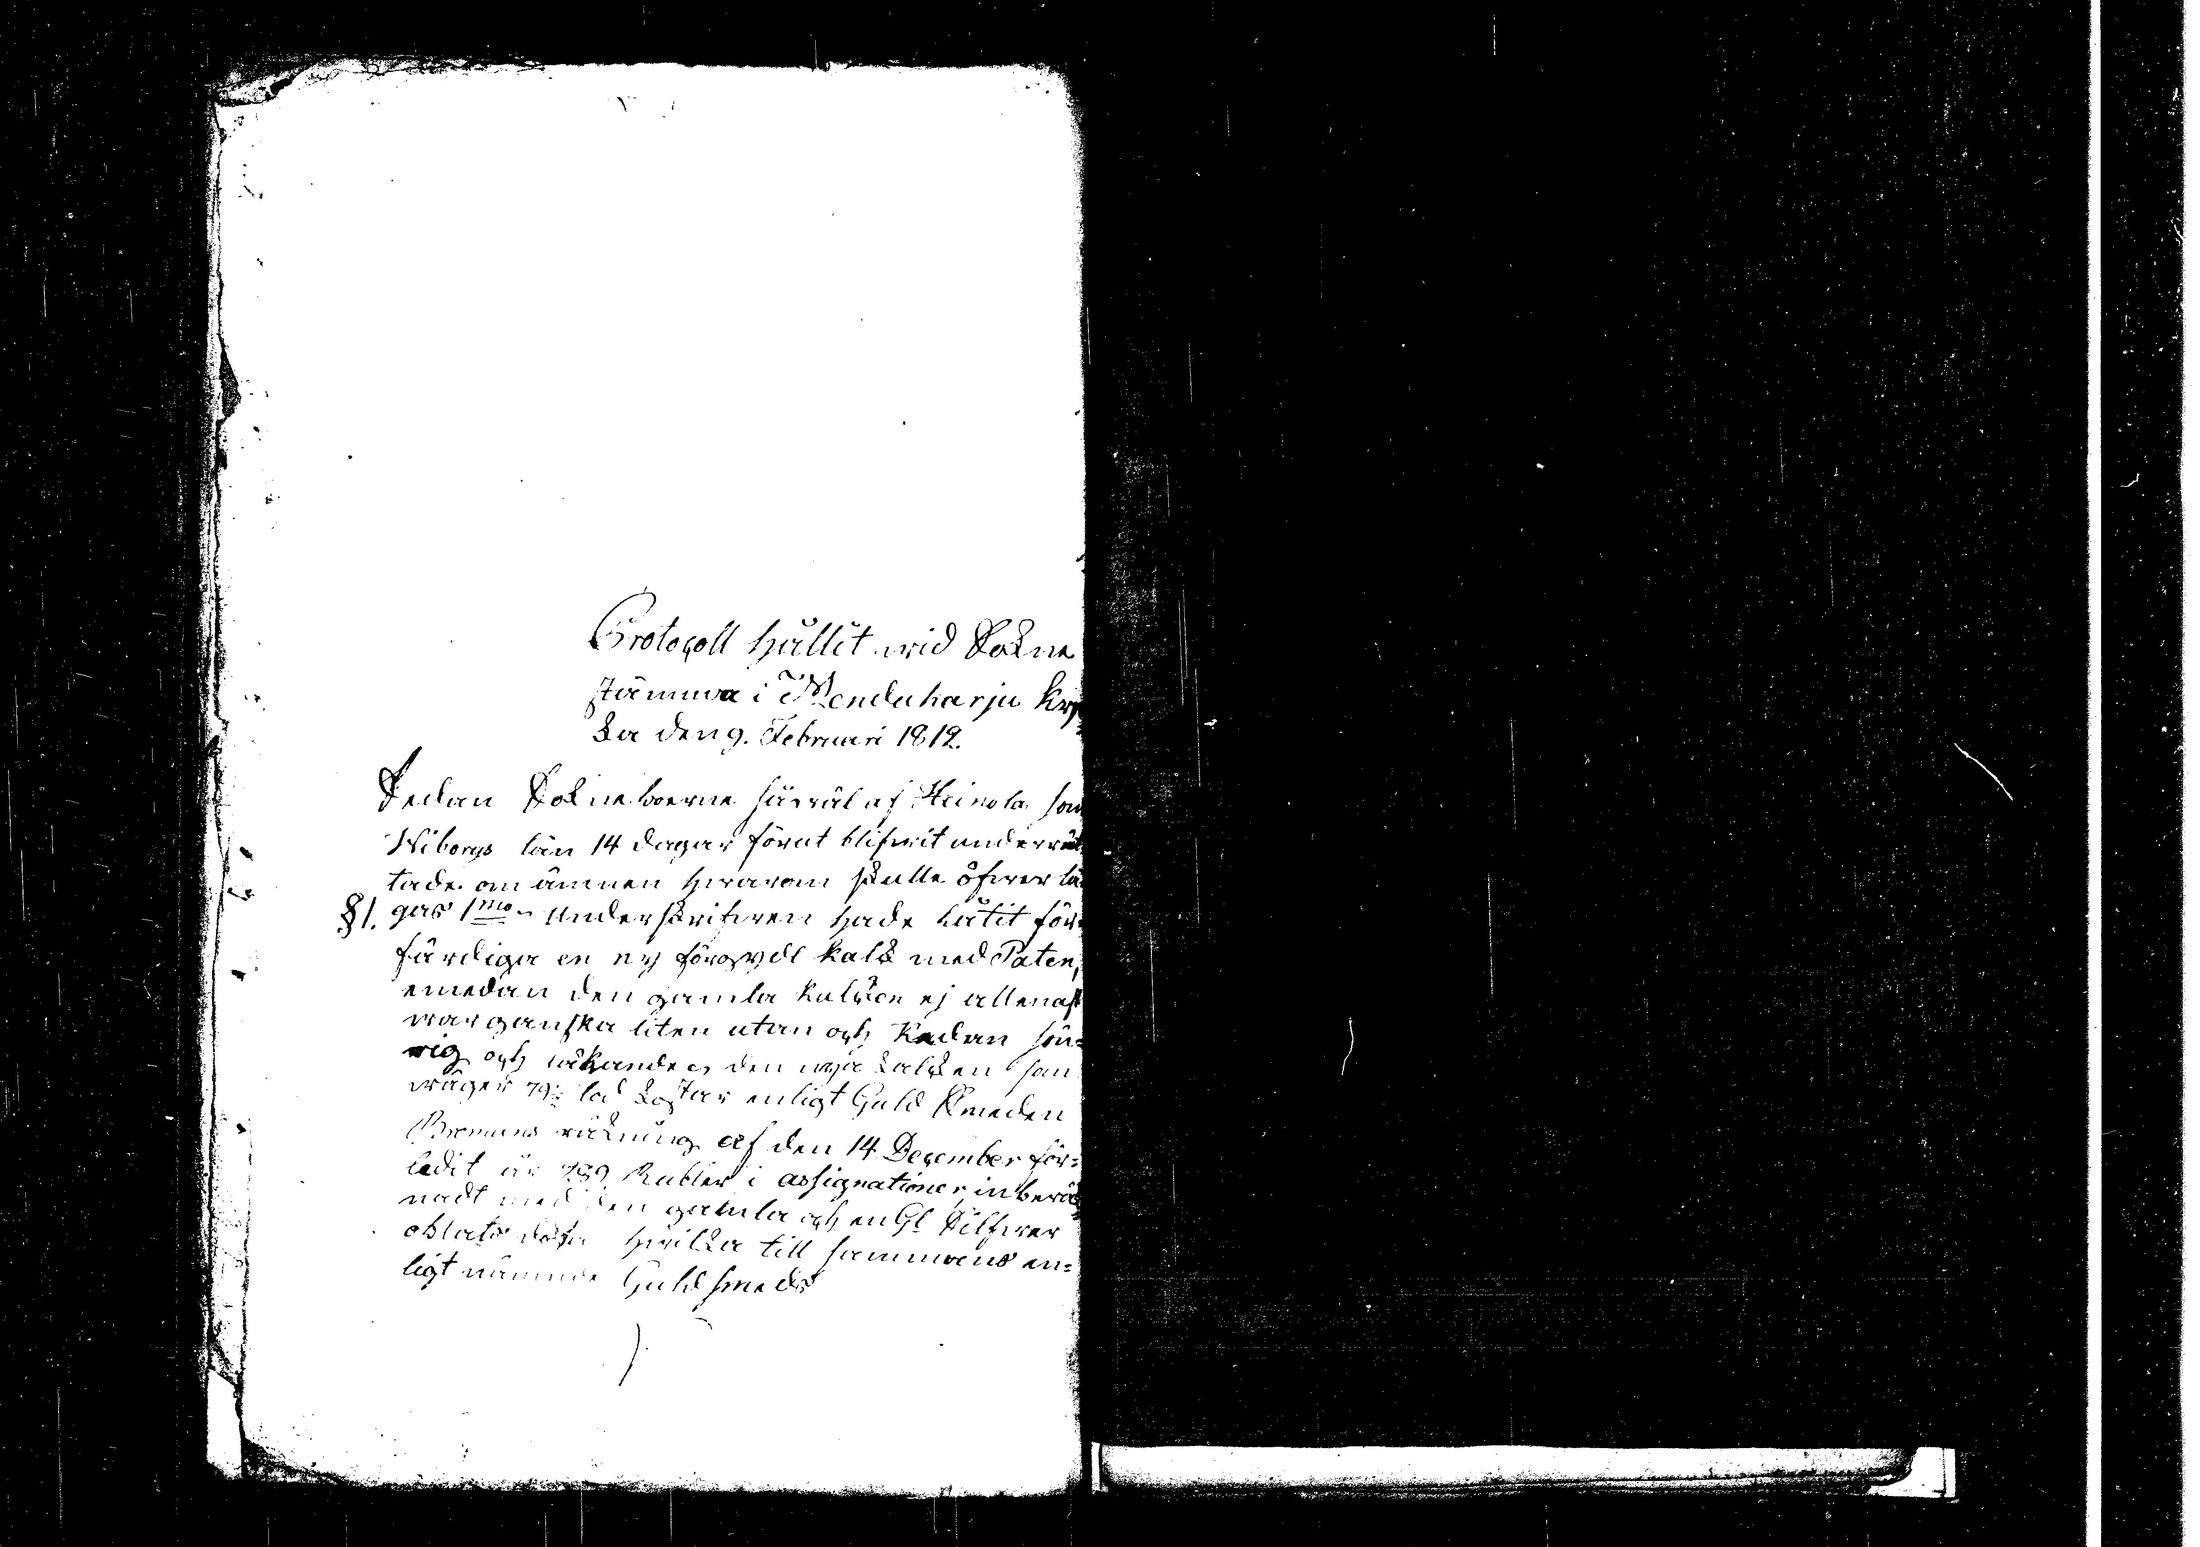 Protocoll hållit wid Sokne
stämma i Menduharju Kyr
ka den 9. Februari 1812.
Sedan Sokneboerne såwäl af Heinola som
Wiborgs län 14 dagar förut blifwit underrät
tade om ämnen hwarom skulle öfwer lä
§1. gas 1mo Underskrifwen hade låtit för=
färdiga en ny förgyld kalk med Paten,
emedan den gamla kalken ej allenast
war ganska liten utan och redan sön=
rig och läkande, den nya kalken som
wäger 79 lod kostar enligt Guld Smeden
räkning af den 14 December för=
ledit år 789 Rubler i assignationer, inberäk
nadt med den gamla och en Gl Silfwer
oblats dosa hwilka till sammans en=
ligt nämnde Guldsmeds